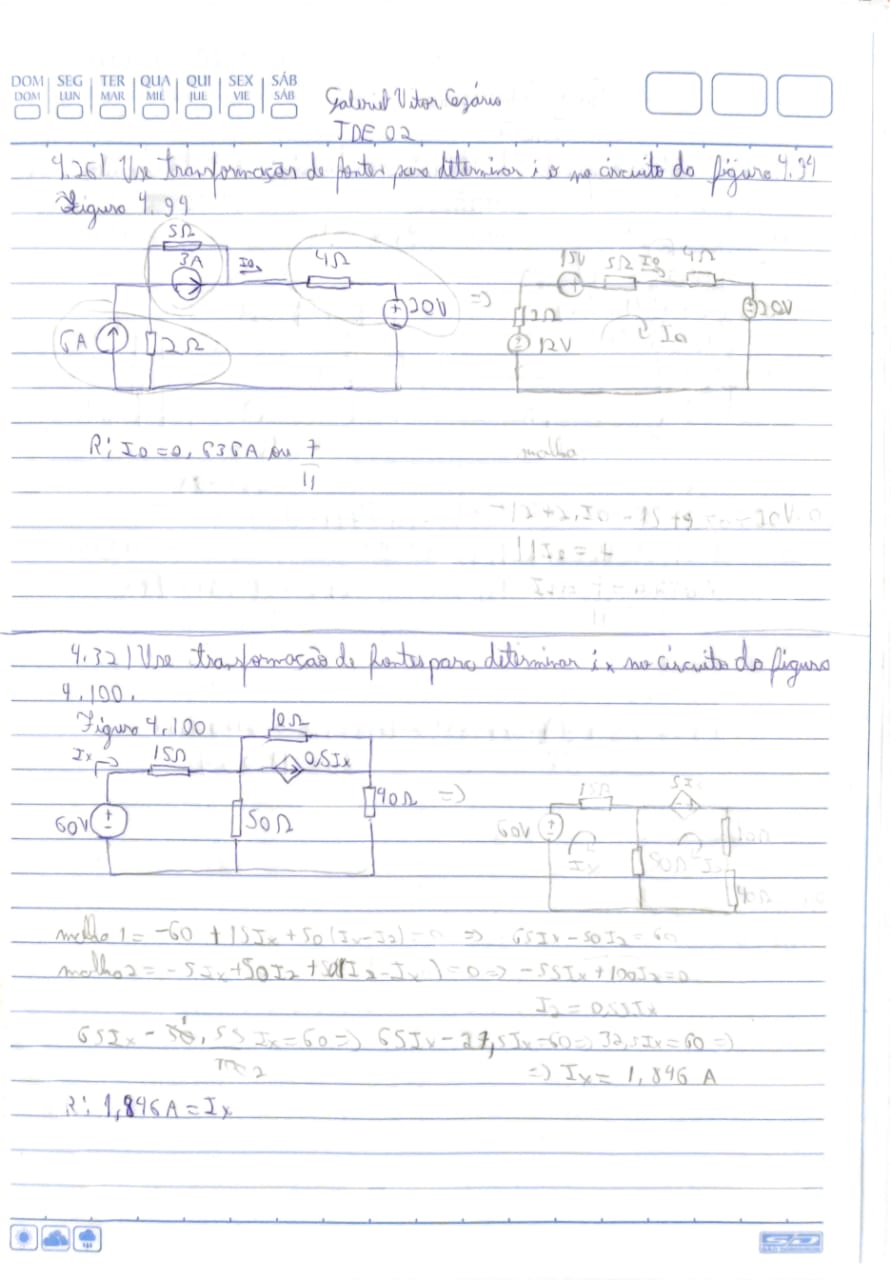 DOM SEG TER QUA QUI SEX SÁB
DOM LUN MAR MIÉ JUE VIE SÁB
Gabriel Vitor Cezário
TDE 02
4.26) Use transformação de fontes para determinar i o no circuito do figura 4.34
Figura 4.99
5Ω
3A
Io
4Ω
20V
6A
2Ω
=>
15V 5Ω Io 4Ω
2Ω
12V
Io
20V
R: Io = 0,636A ou 7
11
malha
11Io = 7
4.32) Use transformação de fontes para determinar ix no circuito do figura
4.100.
Figura 4.100
10Ω
Ix
15Ω
0,5Ix
60V
50Ω
40Ω
=>
15Ω
5Ix
60V
Ix
50Ω
10Ω
40Ω
malha 1 = -60 + 15Ix + 50(Ix-I2) = 0 => 65Ix - 50I2 = 60
malha 2 = -5Ix + 50I2 + 50(I2 - Ix) = 0 => -55Ix + 100I2 = 0
I2 = 0,55Ix
65Ix - 50, 55 Ix = 60 => 65Ix - 27,5Ix = 60 => 32,5Ix = 60 =>
2
=> Ix = 1,846 A
R: 1,846A = Ix